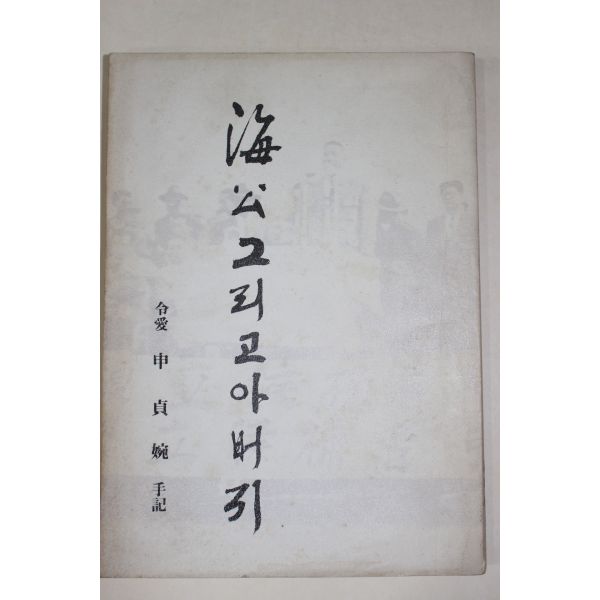 海公그리고아버지
令愛 申貞婉 手記